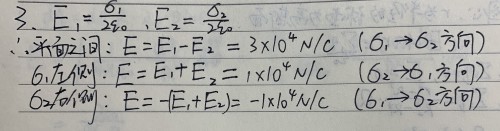 3. E₁=σ₁/2ε₀ , E₂=σ₂/2ε₀
∴平面之间: E=E₁-E₂=3×10⁴N/C (σ₁→σ₂方向)
σ₁左侧: E=E₁+E₂=1×10⁴N/C (σ₂→σ₁方向)
σ₂右侧: E=-(E₁+E₂)=-1×10⁴N/C (σ₁→σ₂方向)